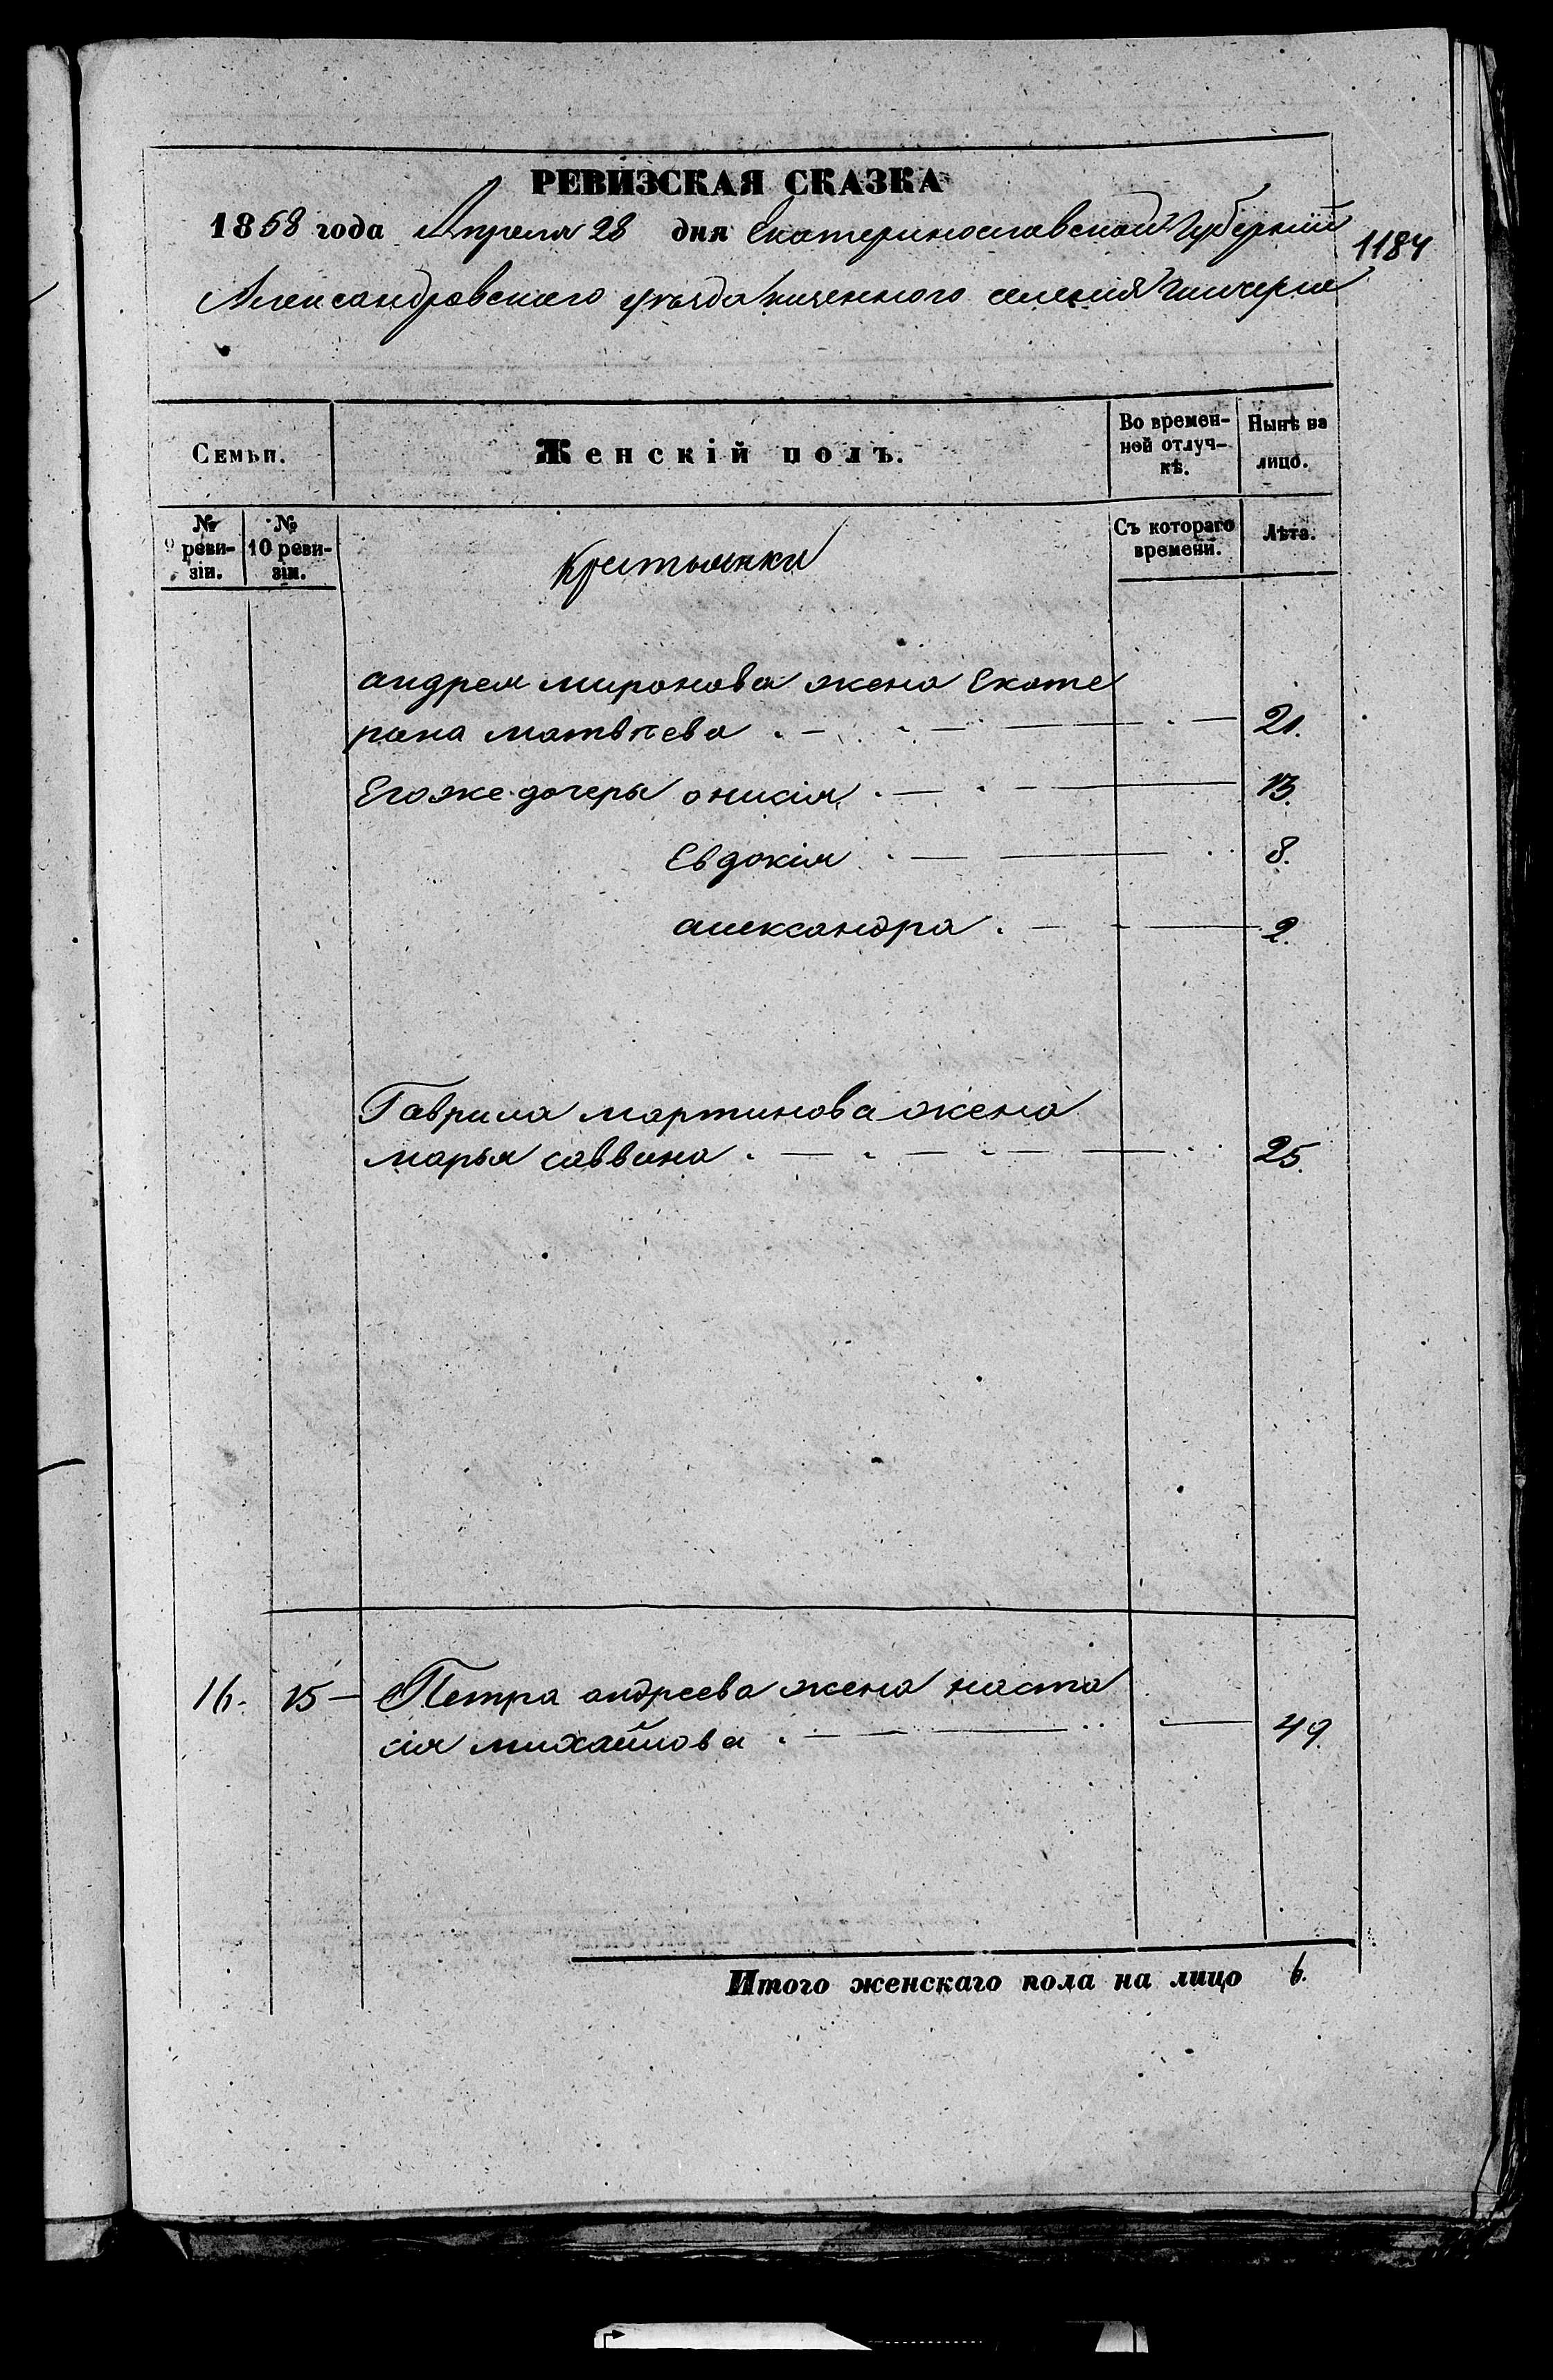 РЕВИЗСКАЯ СКАЗКА
1858 года Апреля 28 дня Екатеринославской Губернии
1184
Александровского уѣзда казенного селения Гнчерла
Семьи.
Женскій полъ.
Во времен-
ной отлуч-
кѣ.
Нынѣ на
лицо.
№
9 реви-
зіи.
№
10 реви-
зіи.
Крестьянки
Съ котораго
времени.
Лѣта.
андрея миронова жена Екате
рина матвѣева 21.
Его же дочеры онисія 13.
Евдокія 8.
александра 2.
Гаврила мартинова жена
марья саввина 25.
16. 15 Петра андреева жена наста
сія михайлова 49.
Итого женскаго пола на лицо 6.